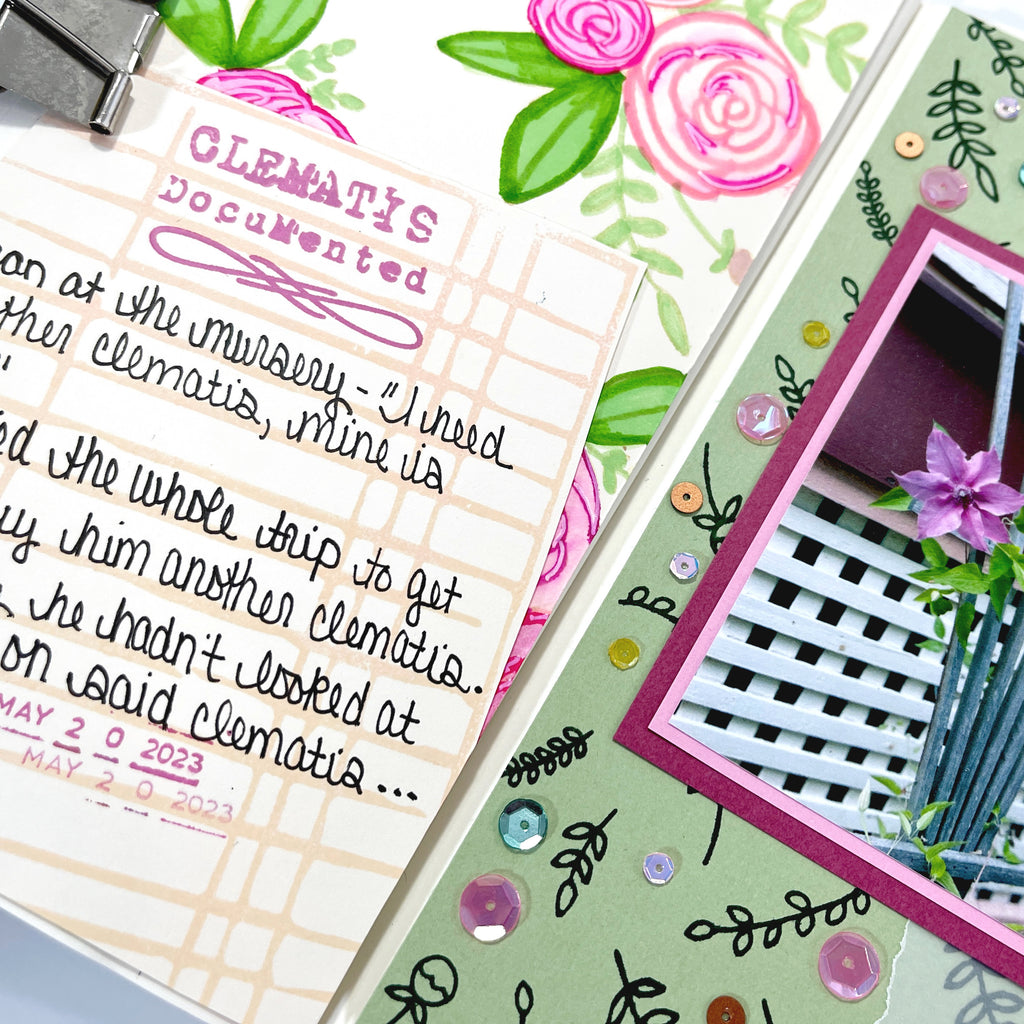 CLEMATIS
Documented
at the nursery - "I need
clematis, mine is
"
the whole trip to get
him another clematis.
he hadn't looked at
on said clematis...
MAY 2 0 2023
MAY 2 0 2023